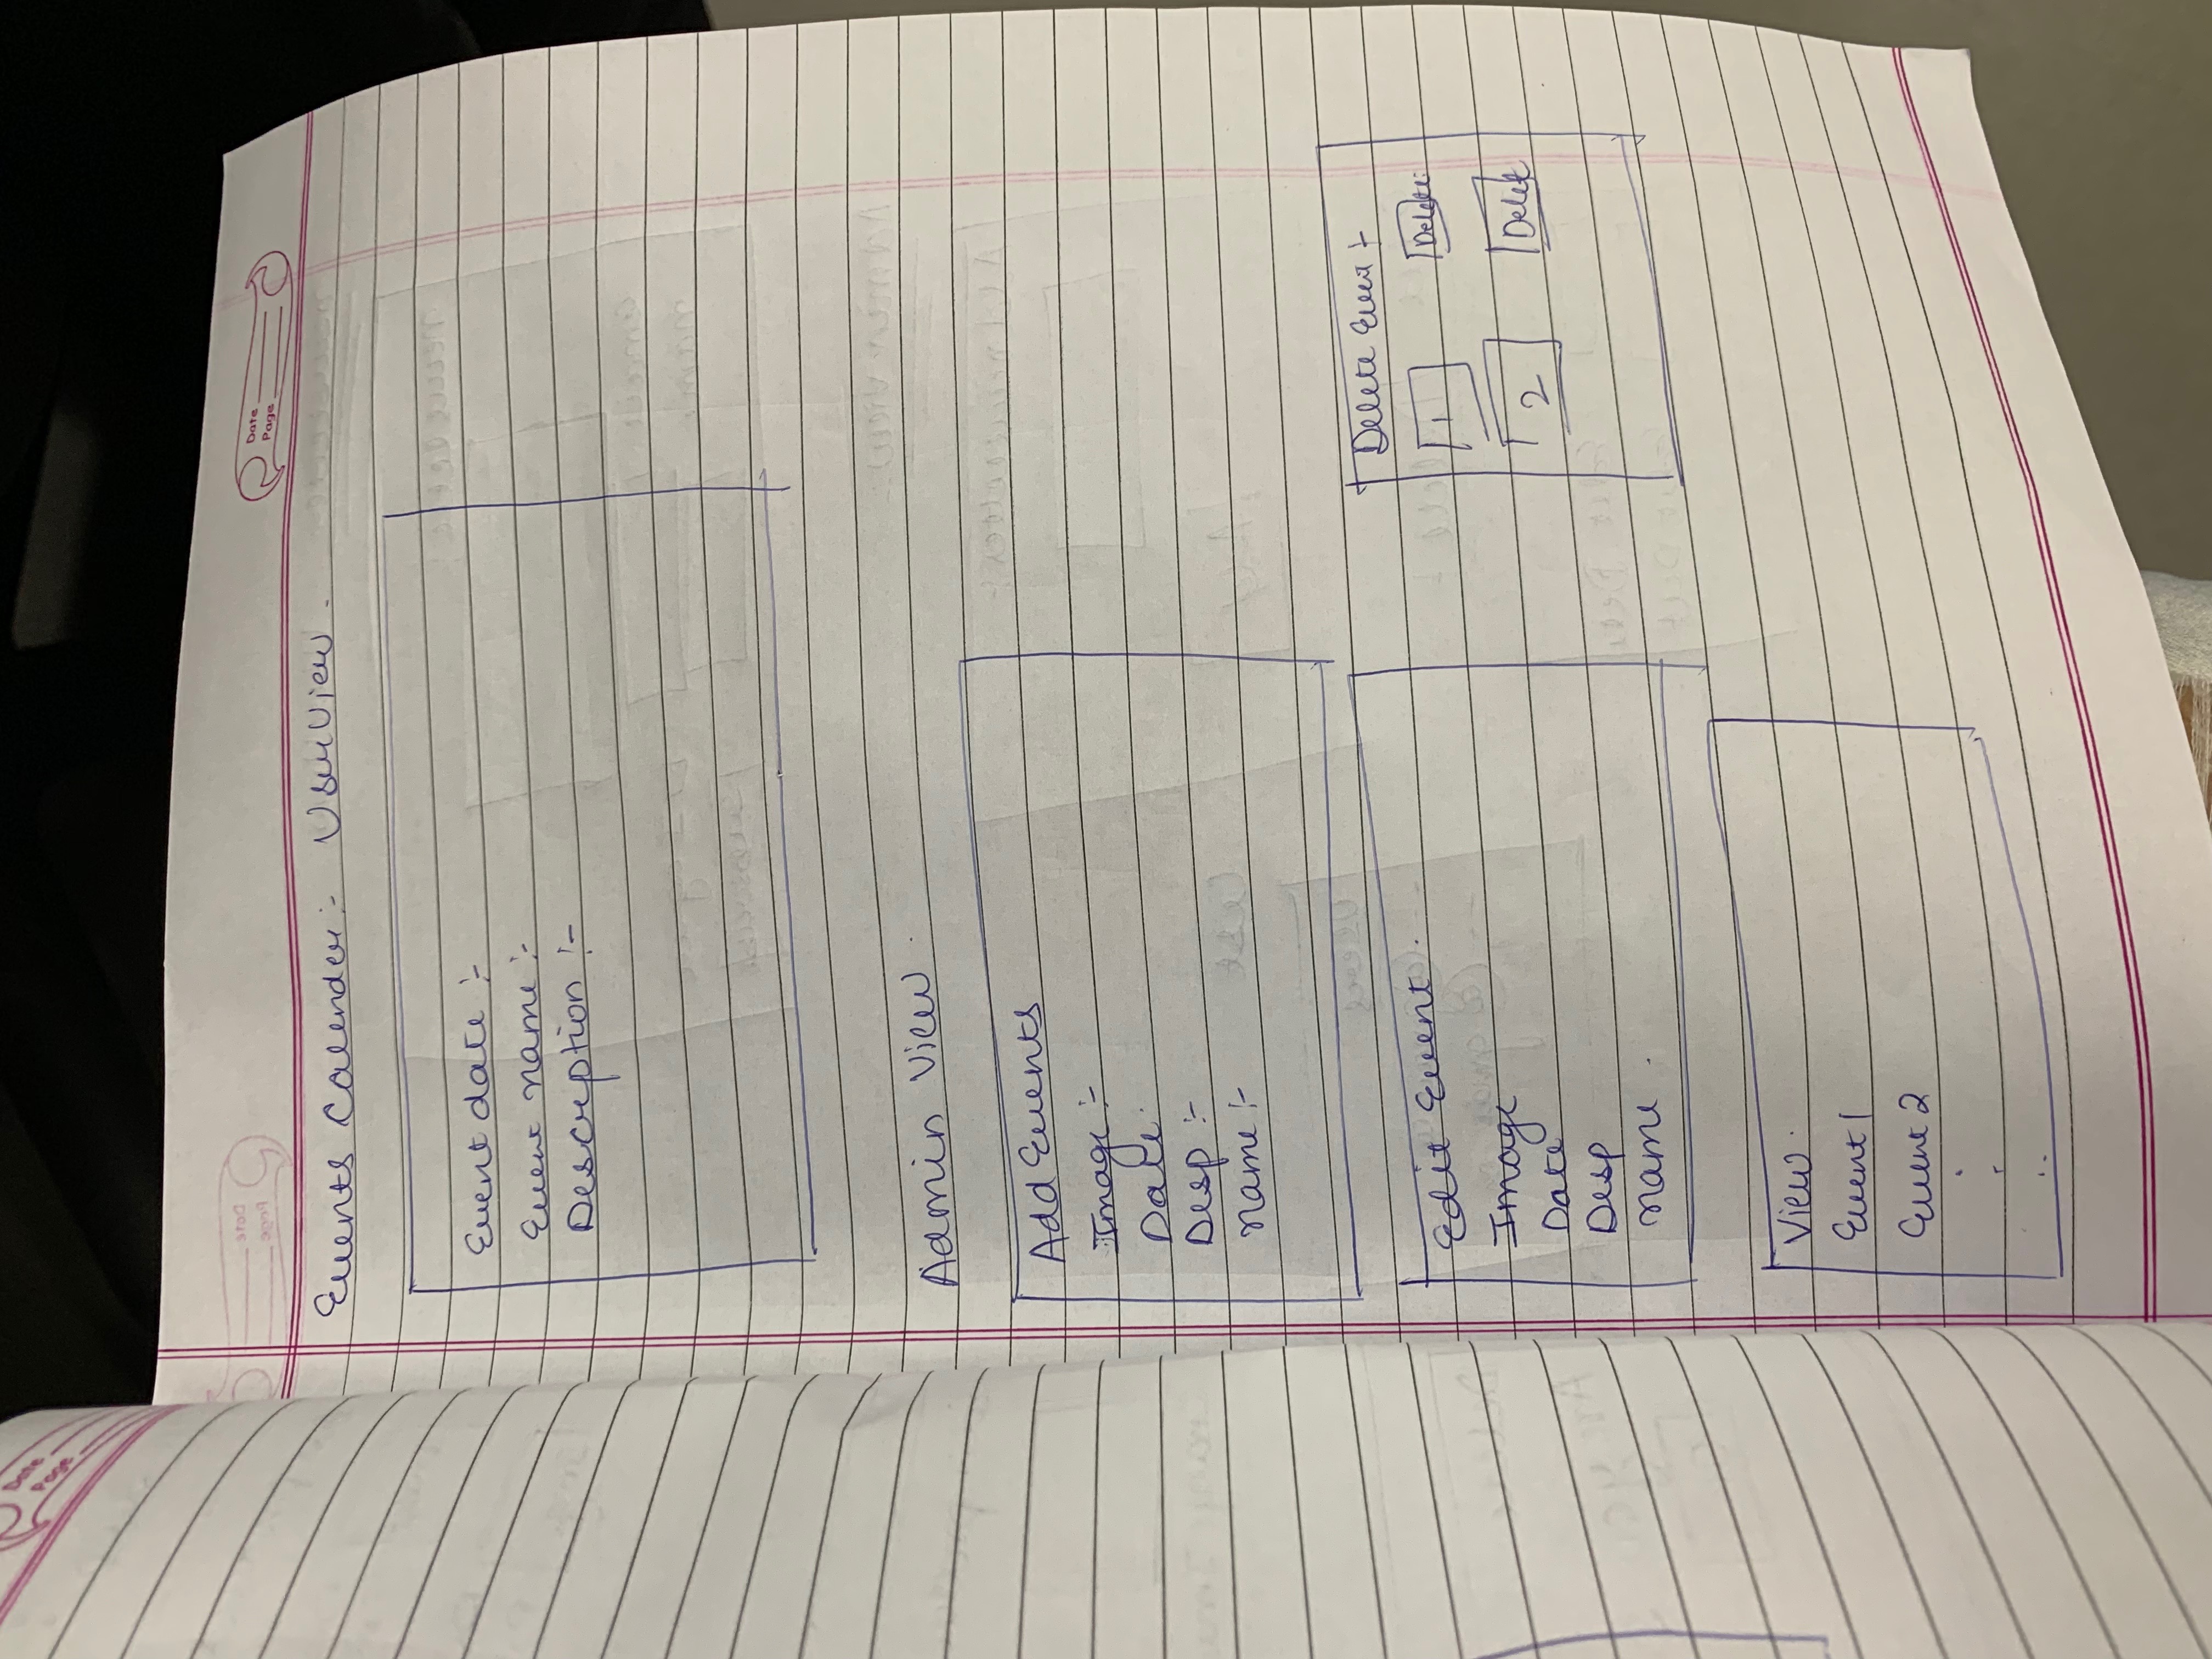 Date
Page
Events Calender:- User View.
Event date :-
Event name :-
Description :-
Admin View.
Add Events
Image :-
Date.
Desp :-
Name :-
Delete Event :-
1 Delete
2 Delete
Edit Event.
Image
Date
Desp
Name.
View.
Event 1
Event 2
Date
Page